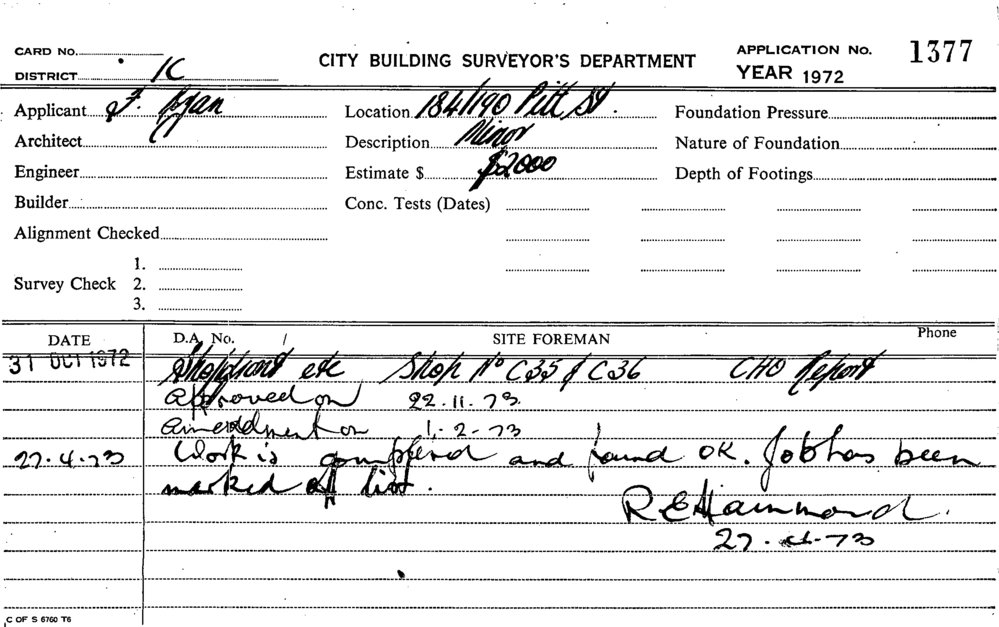 CARD No.
DISTRICT 1C
CITY BUILDING SURVEYOR'S DEPARTMENT
APPLICATION No. 1377
YEAR 1972
Applicant F. Ryan
Location 184/190 Pitt St.
Foundation Pressure
Architect
Description Minor
Nature of Foundation
Engineer
Estimate $ $2000
Depth of Footings
Builder
Conc. Tests (Dates)
Alignment Checked
Survey Check 1.
2.
3.
DATE D.A. No. / SITE FOREMAN Phone
31 OCT 1972 Shopfront etc Shop No C35 & C36 CHO Report
approved on 22.11.73
amendment on 1-2-73
27.4.73 Work is completed and found OK. Job has been
marked off list.
R E Hammond.
27-4-73
C OF S 6760 T6